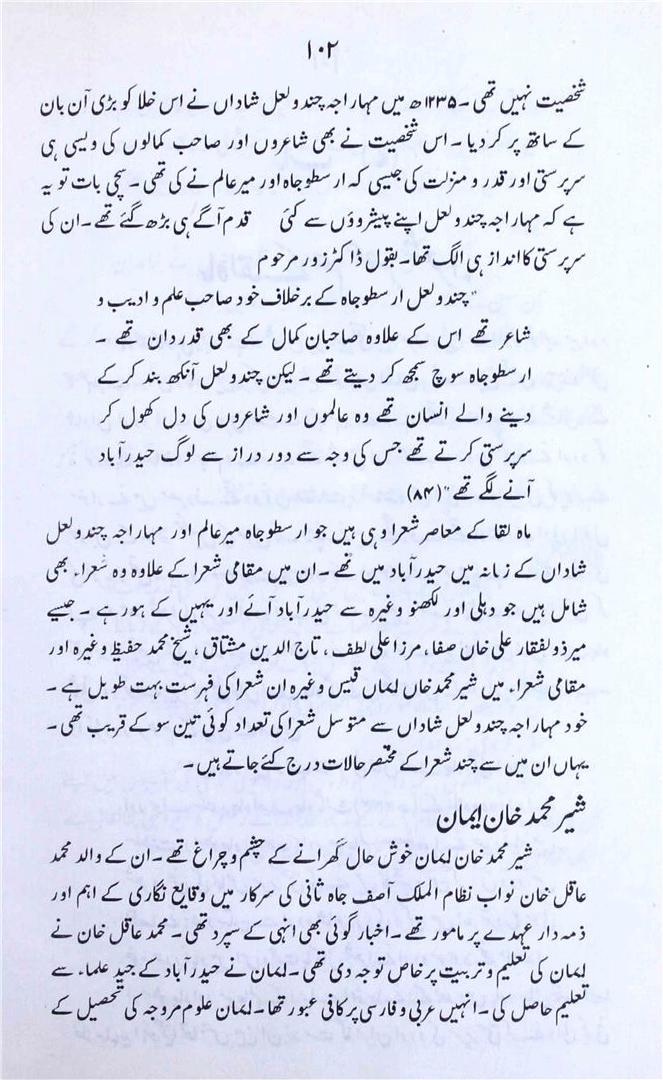 ۱۰۲
شخصیت نہیں تھی۔ ۱۲۳۵ھ میں مہاراجہ چندولعل شاداں نے اس خلا کو بڑی آن بان
کے ساتھ پر کر دیا۔ اس شخصیت نے بھی شاعروں اور صاحب کمالوں کی ویسی ہی
سرپرستی اور قدر و منزلت کی جیسی کہ ارسطوجاہ اور میرعالم نے کی تھی۔ سچی بات تو یہ
ہے کہ مہاراجہ چندولعل اپنے پیشروؤں سے کئی قدم آگے ہی بڑھ گئے تھے۔ ان کی
سرپرستی کا انداز ہی الگ تھا۔ بقول ڈاکٹر زور مرحوم
"چندولعل ارسطوجاہ کے برخلاف خود صاحب علم و ادیب و
شاعر تھے اس کے علاوہ صاحبان کمال کے بھی قدر دان تھے۔
ارسطوجاہ سوچ سمجھ کر دیتے تھے۔ لیکن چندولعل آنکھ بند کر کے
دینے والے انسان تھے وہ عالموں اور شاعروں کی دل کھول کر
سرپرستی کرتے تھے جس کی وجہ سے دور دراز سے لوگ حیدرآباد
آنے لگے تھے" (۸۴)
ماہ لقا کے معاصر شعرا وہی ہیں جو ارسطوجاہ میرعالم اور مہاراجہ چندولعل
شاداں کے زمانہ میں حیدرآباد میں تھے۔ ان میں مقامی شعرا کے علاوہ وہ شعراء بھی
شامل ہیں جو دہلی اور لکھنو وغیرہ سے حیدرآباد آئے اور یہیں کے ہو رہے۔ جیسے
میر ذولفقار علی خان صفا، مرزا علی لطف، تاج الدین مشتاق، شیخ محمد حفیظ وغیرہ اور
مقامی شعراء میں شیر محمد خاں ایماں قیس وغیرہ ان شعرا کی فہرست بہت طویل ہے۔
خود مہاراجہ چندولعل شاداں سے متوسل شعرا کی تعداد کوئی تین سو کے قریب تھی۔
یہاں ان میں سے چند شعرا کے مختصر حالات درج کئے جاتے ہیں۔
شیر محمد خان ایمان
شیر محمد خان ایمان خوش حال گھرانے کے چشم و چراغ تھے۔ ان کے والد محمد
عاقل خان نواب نظام الملک آصف جاہ ثانی کی سرکار میں وقایع نگاری کے اہم اور
ذمہ دار عہدے پر مامور تھے۔ اخبار گوئی بھی انہی کے سپرد تھی۔ محمد عاقل خان نے
ایمان کی تعلیم و تربیت پر خاص توجہ دی تھی۔ ایمان نے حیدرآباد کے جید علماء سے
تعلیم حاصل کی۔ انہیں عربی و فارسی پر کافی عبور تھا۔ ایمان علوم مروجہ کی تحصیل کے